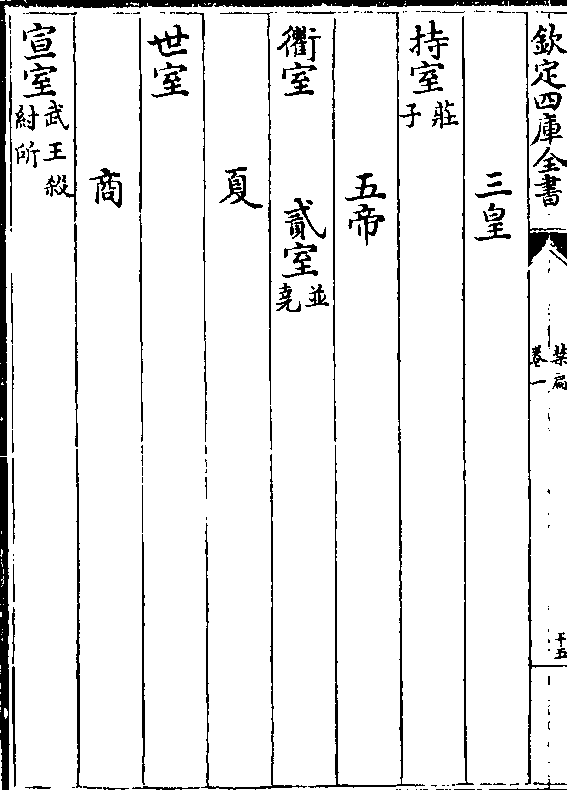 欽定四庫全書
禁扁
卷一
十五
三皇
持室莊子
五帝
衢室 貳室並堯
夏
世室
商
宣室武王殺紂所